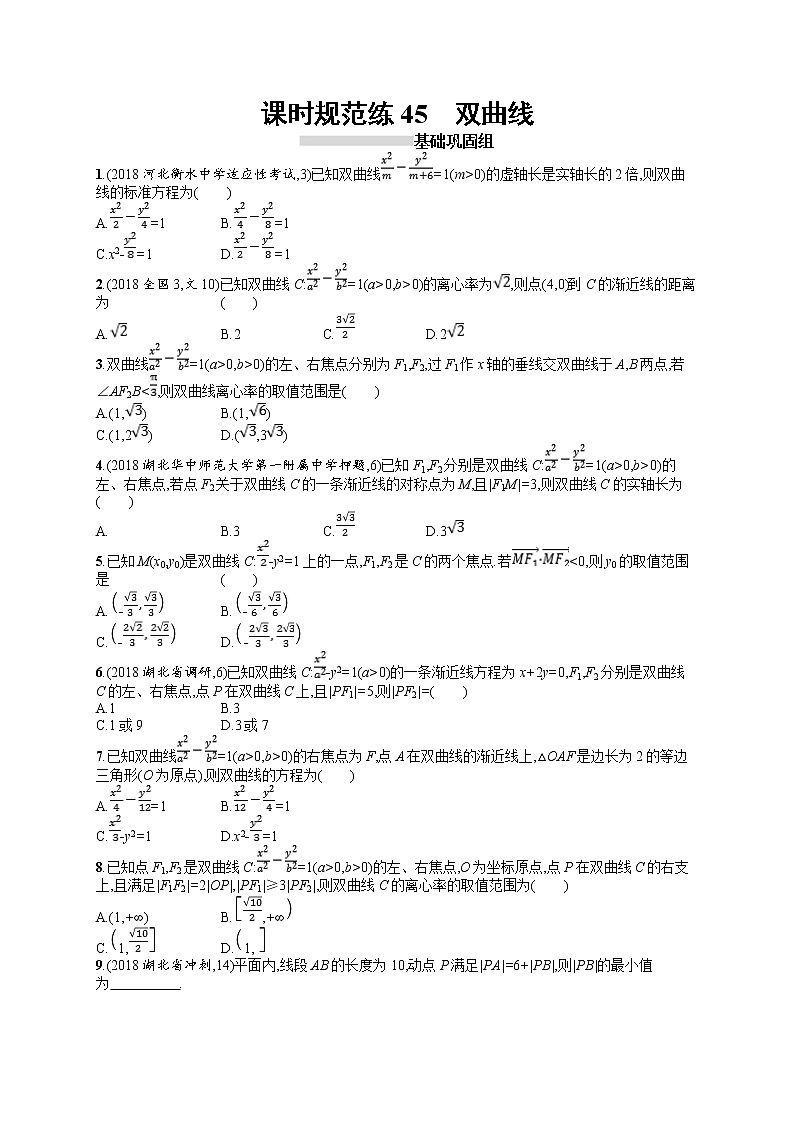 课时规范练45　双曲线
基础巩固组
1.(2018河北衡水中学适应性考试,3)已知双曲线x²/m − y²/(m+6)=1(m>0)的虚轴长是实轴长的2倍,则双曲
线的标准方程为(　　)
A.x²/2 − y²/4=1　　B.x²/4 − y²/8=1
C.x²-y²/8=1　　D.x²/2 − y²/8=1
2.(2018全国3,文10)已知双曲线C:x²/a² − y²/b²=1(a>0,b>0)的离心率为√2,则点(4,0)到C的渐近线的距离
为　　(　　)
A.√2　　B.2　　C.3√2/2　　D.2√2
3.双曲线x²/a² − y²/b²=1(a>0,b>0)的左、右焦点分别为F₁,F₂,过F₁作x轴的垂线交双曲线于A,B两点,若
∠AF₂B<π/3,则双曲线离心率的取值范围是(　　)
A.(1,√3)　　B.(1,√6)
C.(1,2√3)　　D.(√3,3√3)
4.(2018湖北华中师范大学第一附属中学押题,6)已知F₁,F₂分别是双曲线C:x²/a² − y²/b²=1(a>0,b>0)的
左、右焦点,若点F₂关于双曲线C的一条渐近线的对称点为M,且|F₁M|=3,则双曲线C的实轴长为
(　　)
A.　　B.3　　C.3√3/2　　D.3√3
5.已知M(x₀,y₀)是双曲线C:x²/2-y²=1上的一点,F₁,F₂是C的两个焦点.若MF₁·MF₂<0,则y₀的取值范围
是　　(　　)
A.(-√3/3,√3/3)　　B.(-√3/6,√3/6)
C.(-2√2/3,2√2/3)　　D.(-2√3/3,2√3/3)
6.(2018湖北省调研,6)已知双曲线C:x²/a²-y²=1(a>0)的一条渐近线方程为x+2y=0,F₁,F₂分别是双曲线
C的左、右焦点,点P在双曲线C上,且|PF₁|=5,则|PF₂|=(　　)
A.1　　B.3
C.1或9　　D.3或7
7.已知双曲线x²/a² − y²/b²=1(a>0,b>0)的右焦点为F,点A在双曲线的渐近线上,△OAF是边长为2的等边
三角形(O为原点),则双曲线的方程为(　　)
A.x²/4 − y²/12=1　　B.x²/12 − y²/4=1
C.x²/3-y²=1　　D.x²-y²/3=1
8.已知点F₁,F₂是双曲线C:x²/a² − y²/b²=1(a>0,b>0)的左、右焦点,O为坐标原点,点P在双曲线C的右支
上,且满足|F₁F₂|=2|OP|,|PF₁|≥3|PF₂|,则双曲线C的离心率的取值范围为(　　)
A.(1,+∞)　　B.[√10/2,+∞)
C.(1,√10/2]　　D.(1,]
9.(2018湖北省冲刺,14)平面内,线段AB的长度为10,动点P满足|PA|=6+|PB|,则|PB|的最小值
为　　　　.